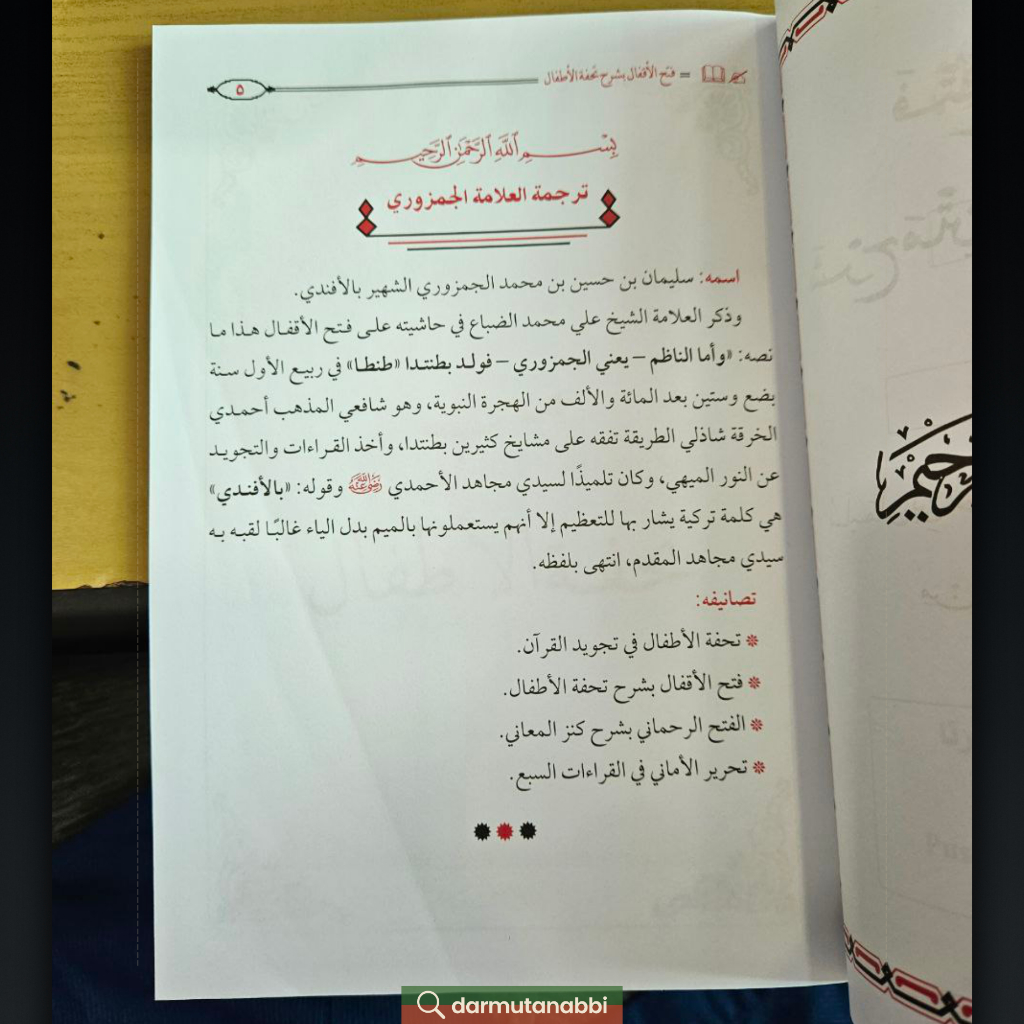 فتح الأقفال بشرح تحفة الأطفال
٥
بِسْمِ ٱللَّهِ ٱلرَّحْمَٰنِ ٱلرَّحِيمِ
ترجمة العلامة الجمزوري
اسمه: سليمان بن حسين بن محمد الجمزوري الشهير بالأفندي.
وذكر العلامة الشيخ علي محمد الضباع في حاشيته على فتح الأقفال هذا ما
نصه: «وأما الناظم – يعني الجمزوري – فولد بطنتدا «طنطا» في ربيع الأول سنة
بضع وستين بعد المائة والألف من الهجرة النبوية، وهو شافعي المذهب أحمدي
الخرقة شاذلي الطريقة تفقه على مشايخ كثيرين بطنتدا، وأخذ القراءات والتجويد
عن النور الميهي، وكان تلميذًا لسيدي مجاهد الأحمدي رضي الله عنه وقوله: «بالأفندي»
هي كلمة تركية يشار بها للتعظيم إلا أنهم يستعملونها بالميم بدل الياء غالبًا لقبه به
سيدي مجاهد المقدم، انتهى بلفظه.
تصانيفه:
تحفة الأطفال في تجويد القرآن.
فتح الأقفال بشرح تحفة الأطفال.
الفتح الرحماني بشرح كنز المعاني.
تحرير الأماني في القراءات السبع.
darmutanabbi